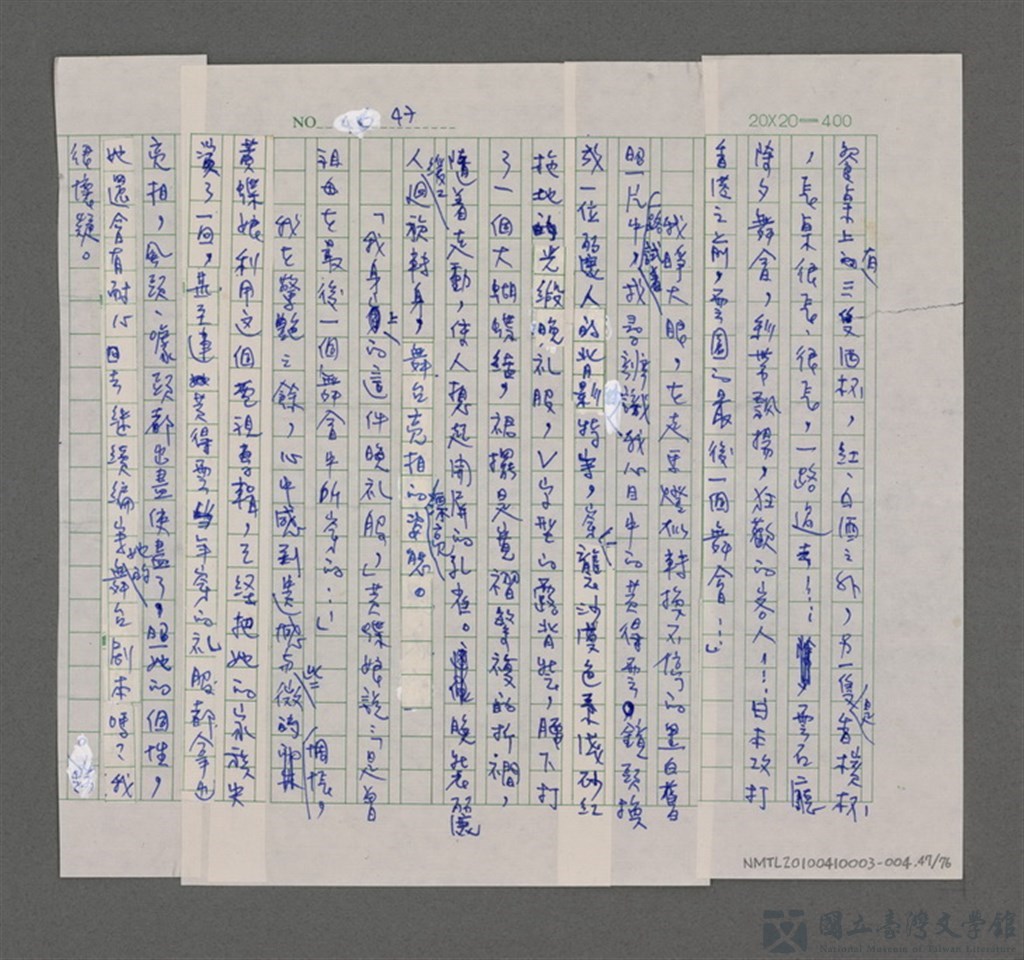 NO 47
20X20＝400
餐桌上有三隻酒杯，紅、白酒之外，另一隻是香檳杯
，長桌很長、很長，一路過去……雲石廳
除夕舞會，彩帶飄揚，狂歡的客人……日本攻打
香港之前，雲園的最後一個舞會……」
我睜大眼，在走馬燈似轉換不停的黑白舊
照片中，試著尋找辨識我心目中的黃得雲，鏡頭換
成一位西洋人的背影特寫，穿襲沙漠色柔淺砂紅
拖地光緞晚禮服，V字型的露背裝，腰下打
了一個大蝴蝶結，裙擺是寬褶繁複的折襉，
隨著走動，使人想起開屏的孔雀。晚裝麗
人緩緩迴旋轉身，舞台亮相的漂亮姿態。
「我身上的這件晚礼服，」黃蝶娘說：「是曾
祖母在最後一個舞會中所穿的……」
我在驚艷之餘，心中感到遺憾與些微的惆悵，
黃蝶娘利用這個電視專輯，已經把她的家族史
演了一回，甚至連黃得雲當年穿的礼服都拿出
亮相，風頭、噱頭都出盡使盡了，照她的個性，
她還會有耐心回去繼續編寫她的舞台劇本嗎？我
很懷疑。
NMTL20100410003-004.47/76
國立臺灣文學館
National Museum of Taiwan Literature